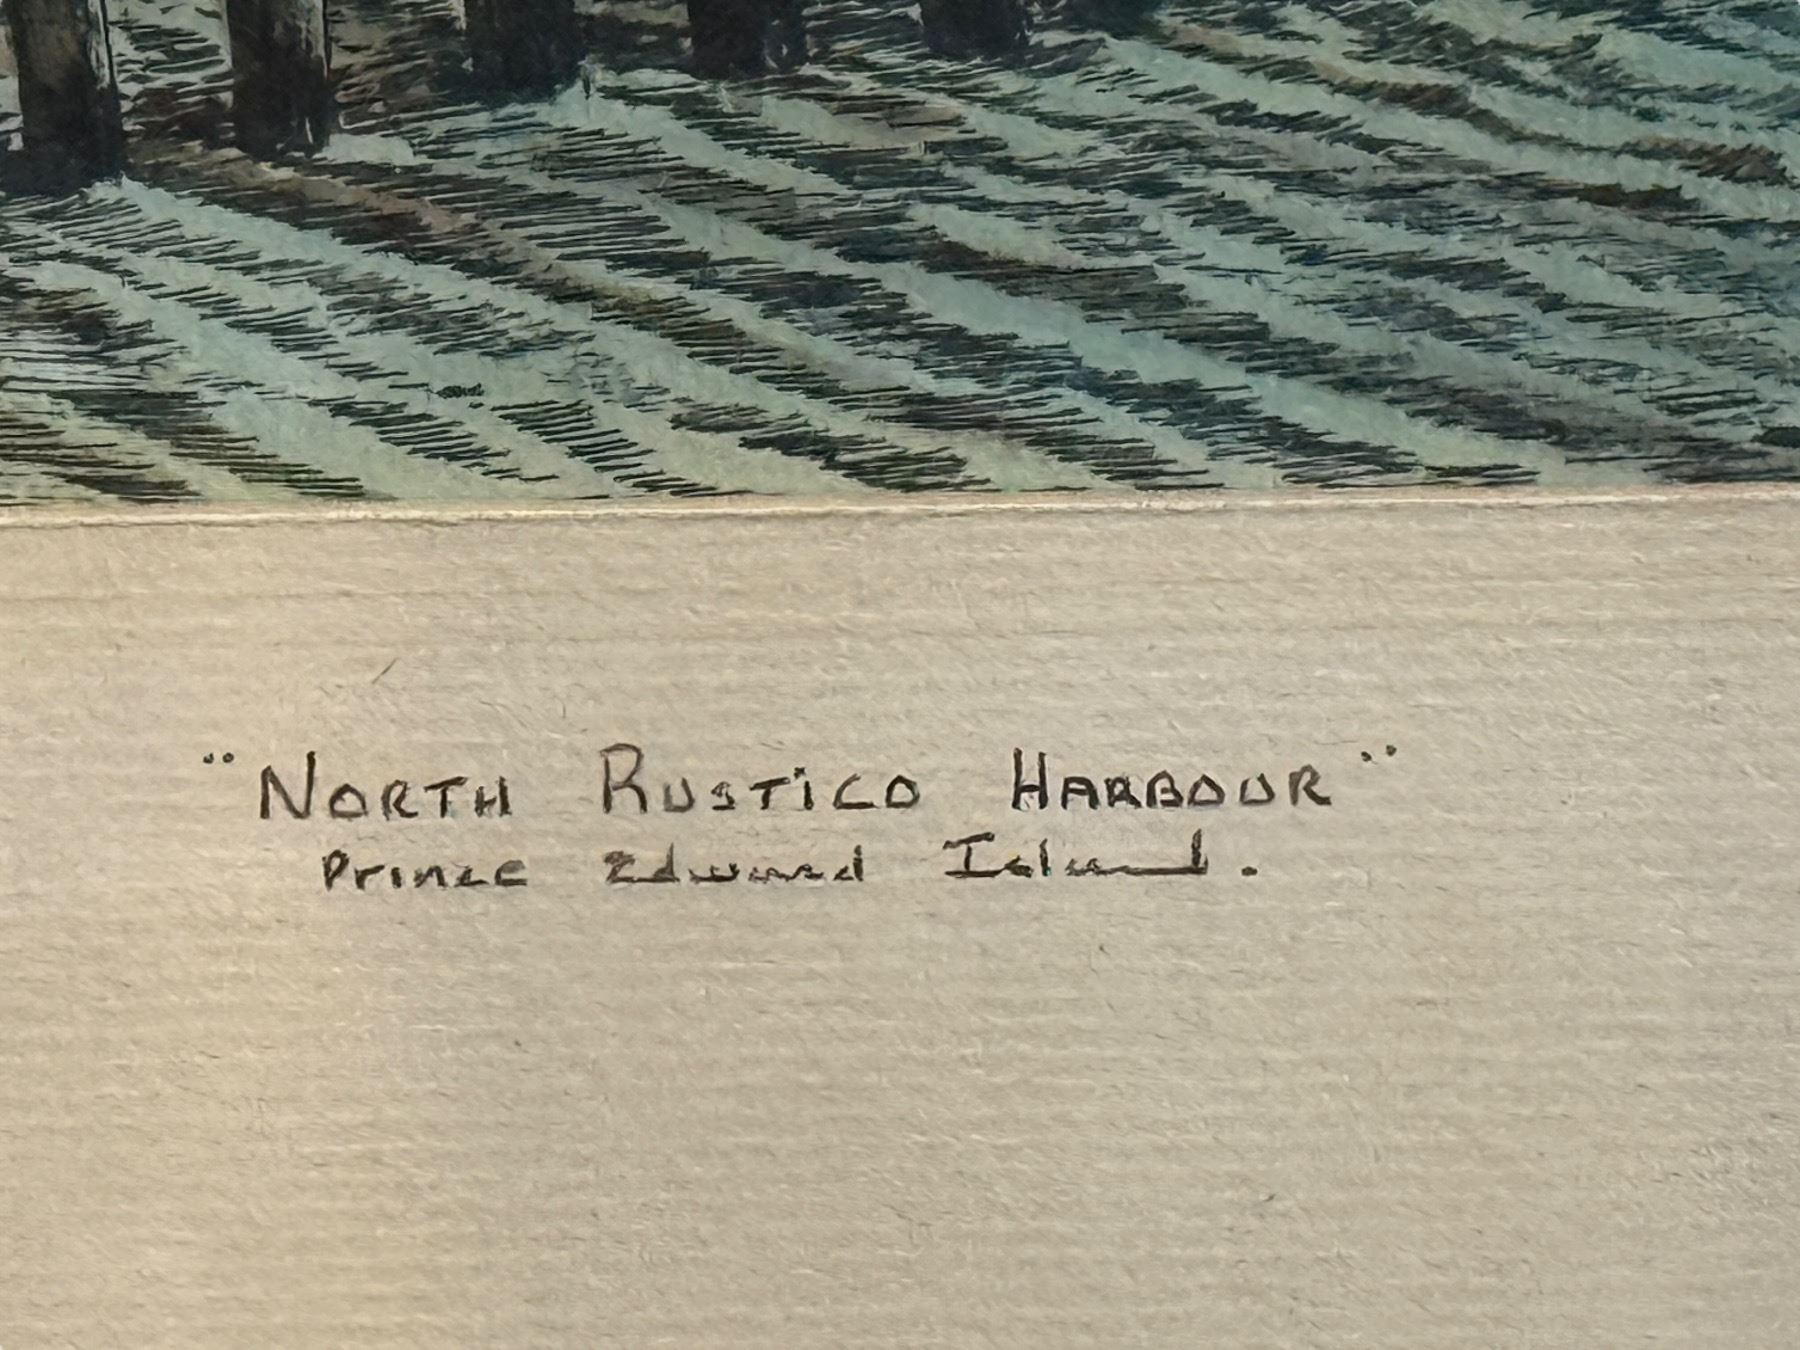 "NORTH RUSTiCO HARBOUR"
Prince Edward Island.